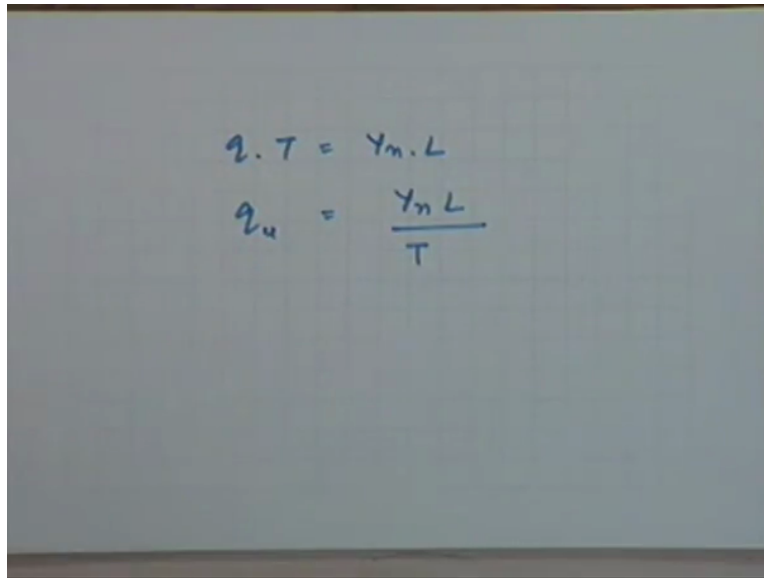 q . T = Yn . L
qu = Yn L / T